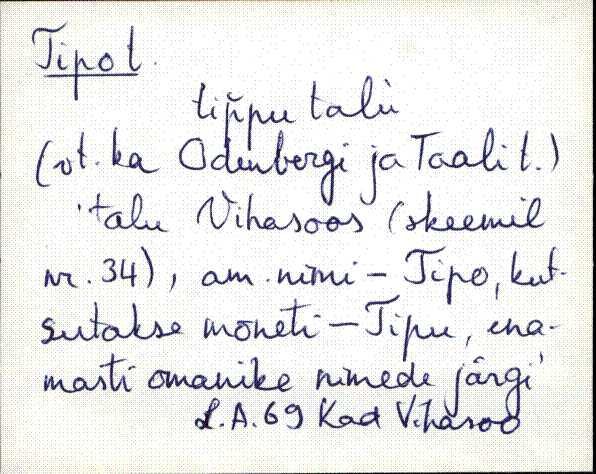 Tipo t.
tip̆pu talù
(vt. ka Odenbergi ja Taali t.)
'talu Vihasoos (skeemil
nr. 34), am. nimi – Tipo, kut-
sutakse mõneti – Tipu, ena-
masti omanike nimede järgi'
L.A. 69 Kad Vihasoo